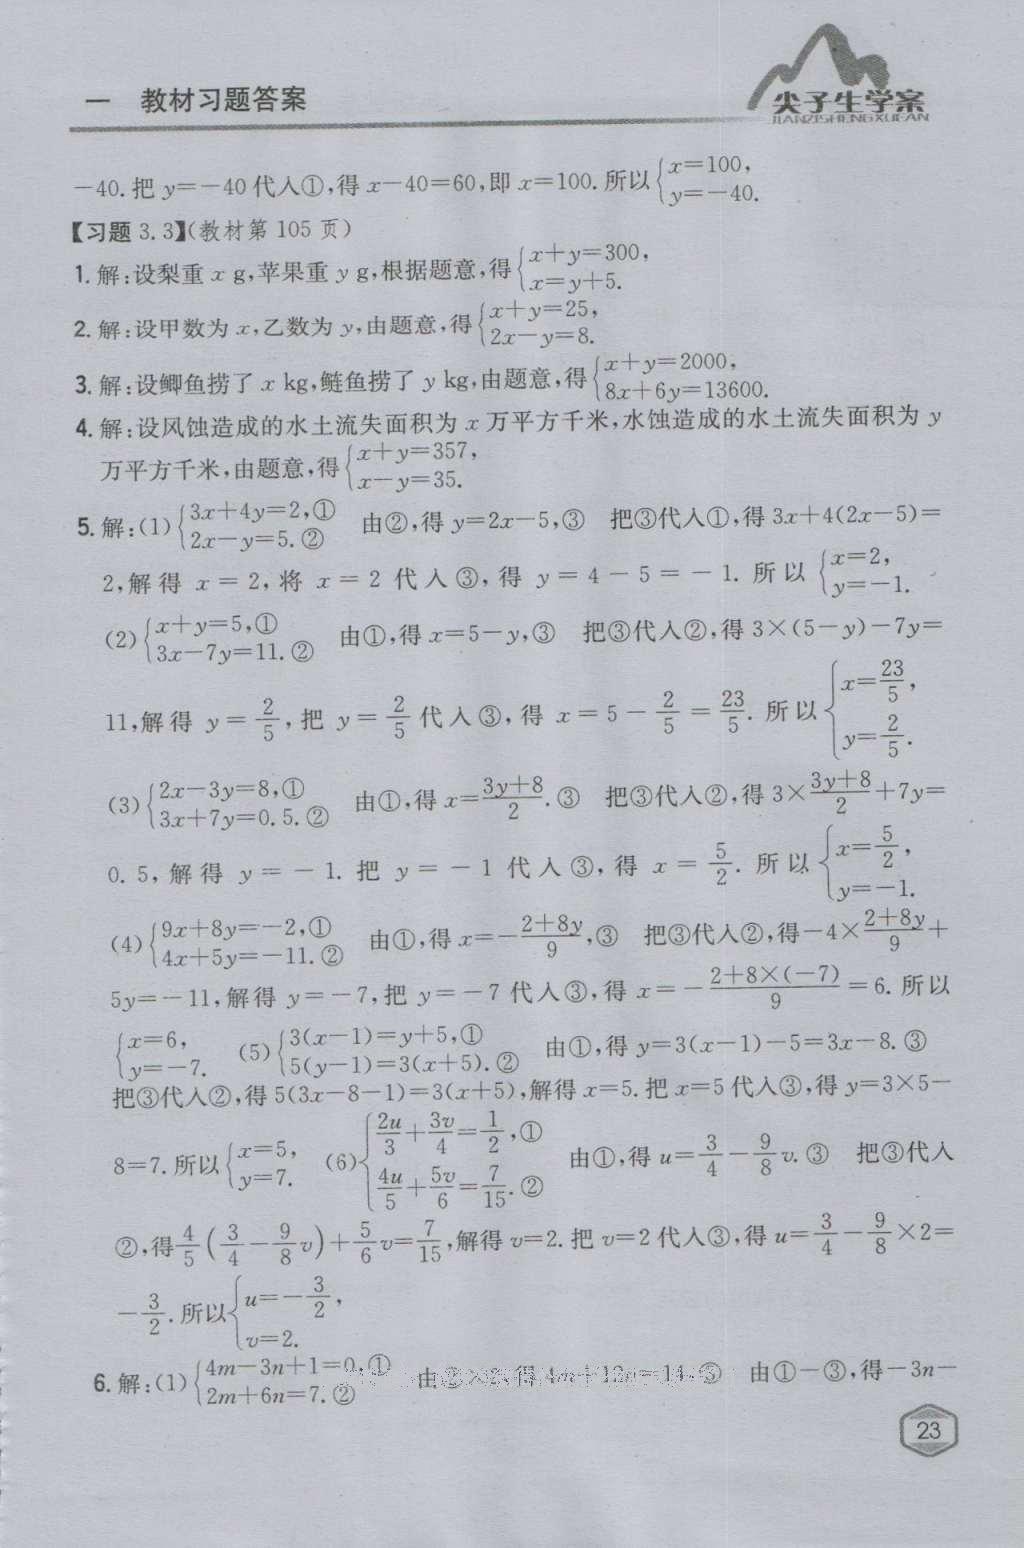 一 教材习题答案
尖子生学案
JIANZISHENGXUEAN
-40.把 y=-40代入①,得 x-40=60,即 x=100.所以{x=100, y=-40.
【习题 3.3】(教材第 105 页)
1.解:设梨重 x g,苹果重 y g,根据题意,得{x+y=300, x=y+5.
2.解:设甲数为 x,乙数为 y,由题意,得{x+y=25, 2x-y=8.
3.解:设鲫鱼捞了 x kg,鲢鱼捞了 y kg,由题意,得{x+y=2000, 8x+6y=13600.
4.解:设风蚀造成的水土流失面积为 x 万平方千米,水蚀造成的水土流失面积为 y
万平方千米,由题意,得{x+y=357, x-y=35.
5.解:(1){3x+4y=2,① 2x-y=5.② 由②,得 y=2x-5,③ 把③代入①,得 3x+4(2x-5)=
2,解得 x=2,将 x=2 代入③,得 y=4-5=-1.所以{x=2, y=-1.
(2){x+y=5,① 3x-7y=11.② 由①,得 x=5-y,③ 把③代入②,得 3×(5-y)-7y=
11,解得 y=2/5,把 y=2/5 代入③,得 x=5-2/5=23/5.所以{x=23/5, y=2/5.
(3){2x-3y=8,① 3x+7y=0.5.② 由①,得 x=(3y+8)/2.③ 把③代入②,得 3×(3y+8)/2+7y=
0.5,解得 y=-1.把 y=-1 代入③,得 x=5/2.所以{x=5/2, y=-1.
(4){9x+8y=-2,① 4x+5y=-11.② 由①,得 x=-(2+8y)/9,③ 把③代入②,得-4×(2+8y)/9+
5y=-11,解得 y=-7,把 y=-7 代入③,得 x=-(2+8×(-7))/9=6.所以
{x=6, y=-7. (5){3(x-1)=y+5,① 5(y-1)=3(x+5).② 由①,得 y=3(x-1)-5=3x-8.③
把③代入②,得 5(3x-8-1)=3(x+5),解得 x=5.把 x=5 代入③,得 y=3×5-
8=7.所以{x=5, y=7. (6){2u/3+3v/4=1/2,① 4u/5+5v/6=7/15.② 由①,得 u=3/4-9/8v.③ 把③代入
②,得4/5(3/4-9/8v)+5/6v=7/15,解得 v=2.把 v=2 代入③,得 u=3/4-9/8×2=
-3/2.所以{u=-3/2, v=2.
6.解:(1){4m-3n+1=0,① 2m+6n=7.② 由②×2,得 4m+12n=14.③ 由①-③,得-3n-
23